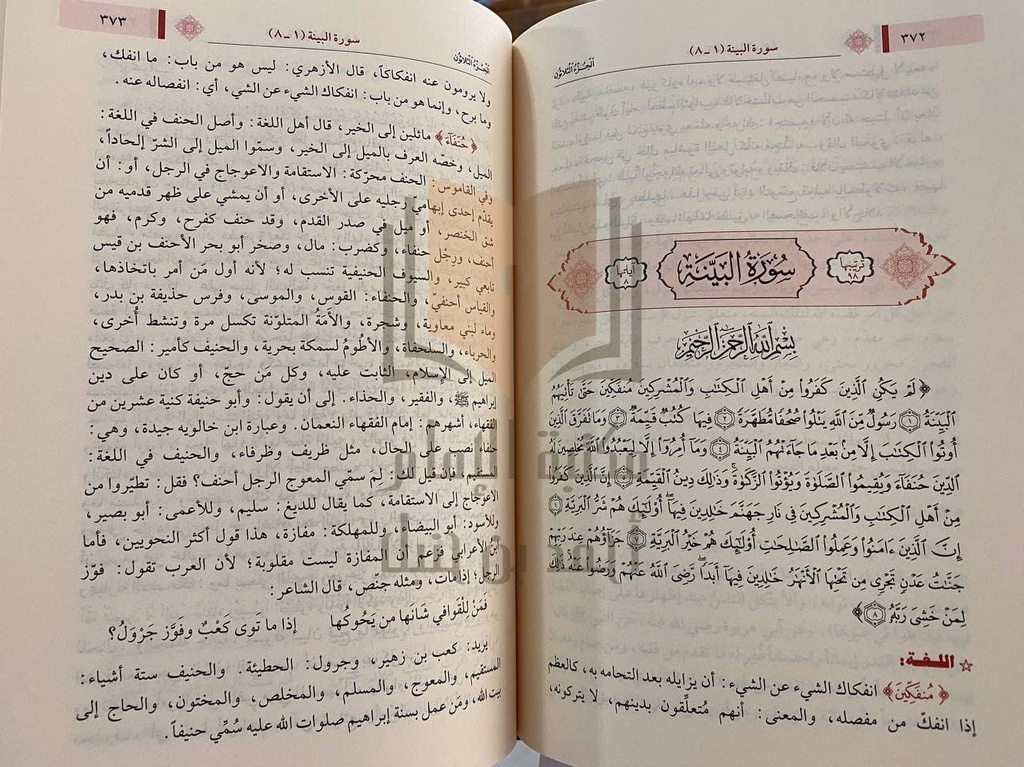 ٣٧٢
سورة البينة (١ - ٨)
الجزء الثلاثون
ترتيبها ٩٨
سُورَةُ البَيِّنَةِ
آياتها ٨
بِسْمِ اللَّهِ الرَّحْمَنِ الرَّحِيمِ
﴿ لَمْ يَكُنِ الَّذِينَ كَفَرُوا مِنْ أَهْلِ الْكِتَابِ وَالْمُشْرِكِينَ مُنفَكِّينَ حَتَّى تَأْتِيَهُمُ
الْبَيِّنَةُ ﴿١﴾ رَسُولٌ مِّنَ اللَّهِ يَتْلُوا صُحُفًا مُّطَهَّرَةً ﴿٢﴾ فِيهَا كُتُبٌ قَيِّمَةٌ ﴿٣﴾ وَمَا تَفَرَّقَ الَّذِينَ
أُوتُوا الْكِتَابَ إِلَّا مِنْ بَعْدِ مَا جَاءَتْهُمُ الْبَيِّنَةُ ﴿٤﴾ وَمَا أُمِرُوا إِلَّا لِيَعْبُدُوا اللَّهَ مُخْلِصِينَ لَهُ
الدِّينَ حُنَفَاءَ وَيُقِيمُوا الصَّلَوٰةَ وَيُؤْتُوا الزَّكَوٰةَ وَذَٰلِكَ دِينُ الْقَيِّمَةِ ﴿٥﴾ إِنَّ الَّذِينَ كَفَرُوا
مِنْ أَهْلِ الْكِتَابِ وَالْمُشْرِكِينَ فِي نَارِ جَهَنَّمَ خَالِدِينَ فِيهَا أُولَٰئِكَ هُمْ شَرُّ الْبَرِيَّةِ ﴿٦﴾
إِنَّ الَّذِينَ ءَامَنُوا وَعَمِلُوا الصَّالِحَاتِ أُولَٰئِكَ هُمْ خَيْرُ الْبَرِيَّةِ ﴿٧﴾ جَزَاؤُهُمْ عِندَ رَبِّهِمْ
جَنَّاتُ عَدْنٍ تَجْرِي مِن تَحْتِهَا الْأَنْهَارُ خَالِدِينَ فِيهَا أَبَدًا رَّضِيَ اللَّهُ عَنْهُمْ وَرَضُوا عَنْهُ ذَٰلِكَ
لِمَنْ خَشِيَ رَبَّهُ ﴿٨﴾ ﴾
☆ اللغة:
﴿ مُنفَكِّينَ ﴾ انفكاك الشيء عن الشيء: أن يزايله بعد التحامه به، كالعظم
إذا انفكّ من مفصله، والمعنى: أنهم مُتعلّقون بدينهم، لا يتركونه،
٣٧٣
سورة البينة (١ - ٨)
الجزء الثلاثون
ولا يرومون عنه انفكاكاً، قال الأزهري: ليس هو من باب: ما انفك،
وما برح، وإنما هو من باب: انفكاك الشيء عن الشي، أي: انفصاله عنه.
﴿ حُنَفَآءَ ﴾ مائلين إلى الخير، قال أهل اللغة: وأصل الحنف في اللغة:
الميل، وخصّه العرف بالميل إلى الخير، وسمّوا الميل إلى الشرّ إلحاداً،
وفي القاموس: الحنف محرّكة: الاستقامة والاعوجاج في الرجل، أو: أن
يقدّم إحدى إبهامي رجليه على الأخرى، أو أن يمشي على ظهر قدميه من
شق الخنصر، أو ميل في صدر القدم، وقد حنف كفرح، وكرم، فهو
أحنف، ورِجْل حنفاء، وكضرب: مال، وصخر أبو بحر الأحنف بن قيس
تابعي كبير، والسيوف الحنيفية تنسب له؛ لأنه أول مَن أمر باتخاذها،
والقياس أحنفيّ، والحنفاء: القوس، والموسى، وفرس حذيفة بن بدر،
وماء لبني معاوية، وشجرة، والأمَةُ المتلوّنة تكسل مرة وتنشط أُخرى،
والحرباء، والسلحفاة، والأطُومُ لسمكة بحرية، والحنيف كأمير: الصحيح
الميل إلى الإسلام، الثابت عليه، وكل مَن حجّ، أو كان على دين
إبراهيم ﷺ، والفقير، والحذاء. إلى أن يقول: وأبو حنيفة كنية عشرين من
الفقهاء، أشهرهم: إمام الفقهاء النعمان. وعبارة ابن خالويه جيدة، وهي:
حنفاء نصب على الحال، مثل ظريف وظرفاء، والحنيف في اللغة:
المستقيم، فإن قيل لك: لِمَ سمّي المعوج الرجل أحنف؟ فقل: تطيّروا من
الاعوجاج إلى الاستقامة، كما يقال للديغ: سليم، وللأعمى: أبو بصير،
وللأسود: أبو البيضاء، وللمهلكة: مفازة، هذا قول أكثر النحويين، فأما
ابن الأعرابي فزعم أن المفازة ليست مقلوبة؛ لأن العرب تقول: فوّز
الرجل؛ إذا مات، ومثله جنّص، قال الشاعر:
فَمَنْ لِلْقوافي شَانَها من يَحُوكُها إذا ما تَوى كَعْبٌ وفَوَّز جَرْوَلُ؟
يريد: كعب بن زهير، وجرول: الحطيئة. والحنيف ستة أشياء:
المستقيم، والمعوج، والمسلم، والمخلص، والمختون، والحاج إلى
بيت الله، ومَن عمل بسنة إبراهيم صلوات الله عليه سُمِّي حنيفاً.